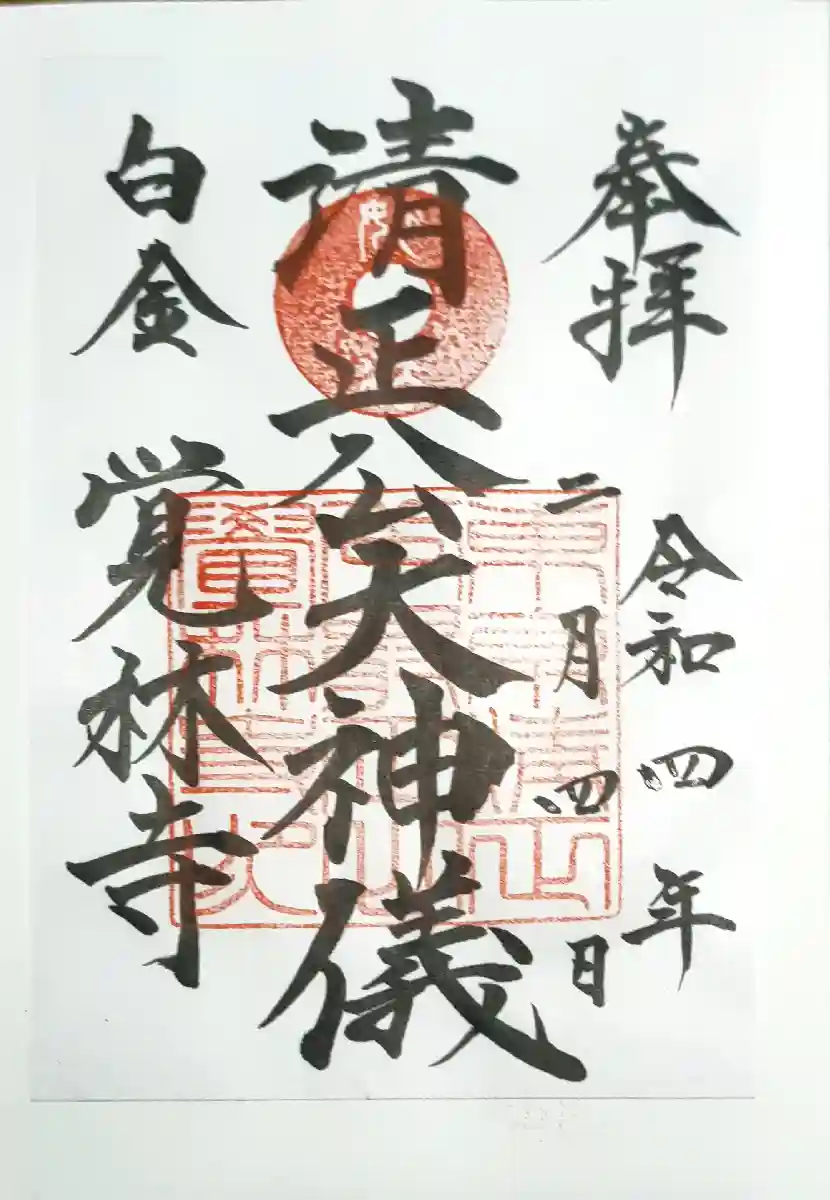 奉拝
令和四年
二月四日
清正公大神儀
白金 覚林寺